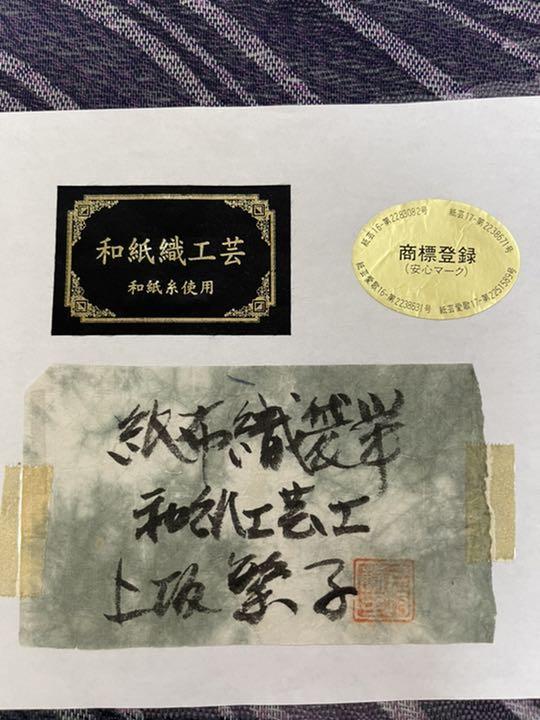 和紙織工芸
和紙糸使用
紙芸16-第2283082号 紙芸17-第2238671号
商標登録
(安心マーク)
紙芸愛歌16-第2238631号 紙芸愛歌17-第2251589号
紙布織袋帯
和紙工芸士
上坂 繁子